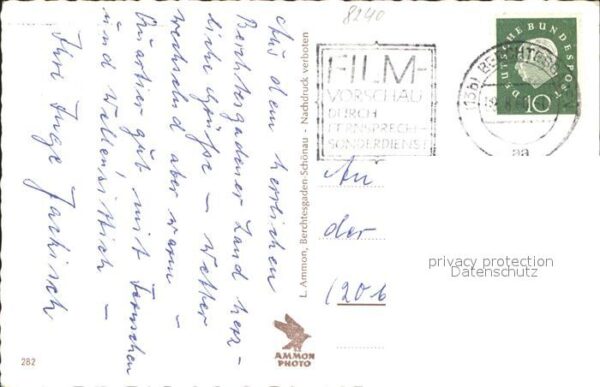 8240
Aus dem herrlichen
Berchtesgadener Land herz-
liche Grüße – Wetter
wechselnd aber warm –
Quartier gut mit Fernsehen
und Wellensittich –
Ihre Inge
L. Ammon, Berchtesgaden-Schönau - Nachdruck verboten
AMMON
PHOTO
282
FILM-
VORSCHAU
DURCH
FERNSPRECH-
SONDERDIENST
DEUTSCHE BUNDESPOST
10
aa
An
der
(20b
privacy protection
Datenschutz